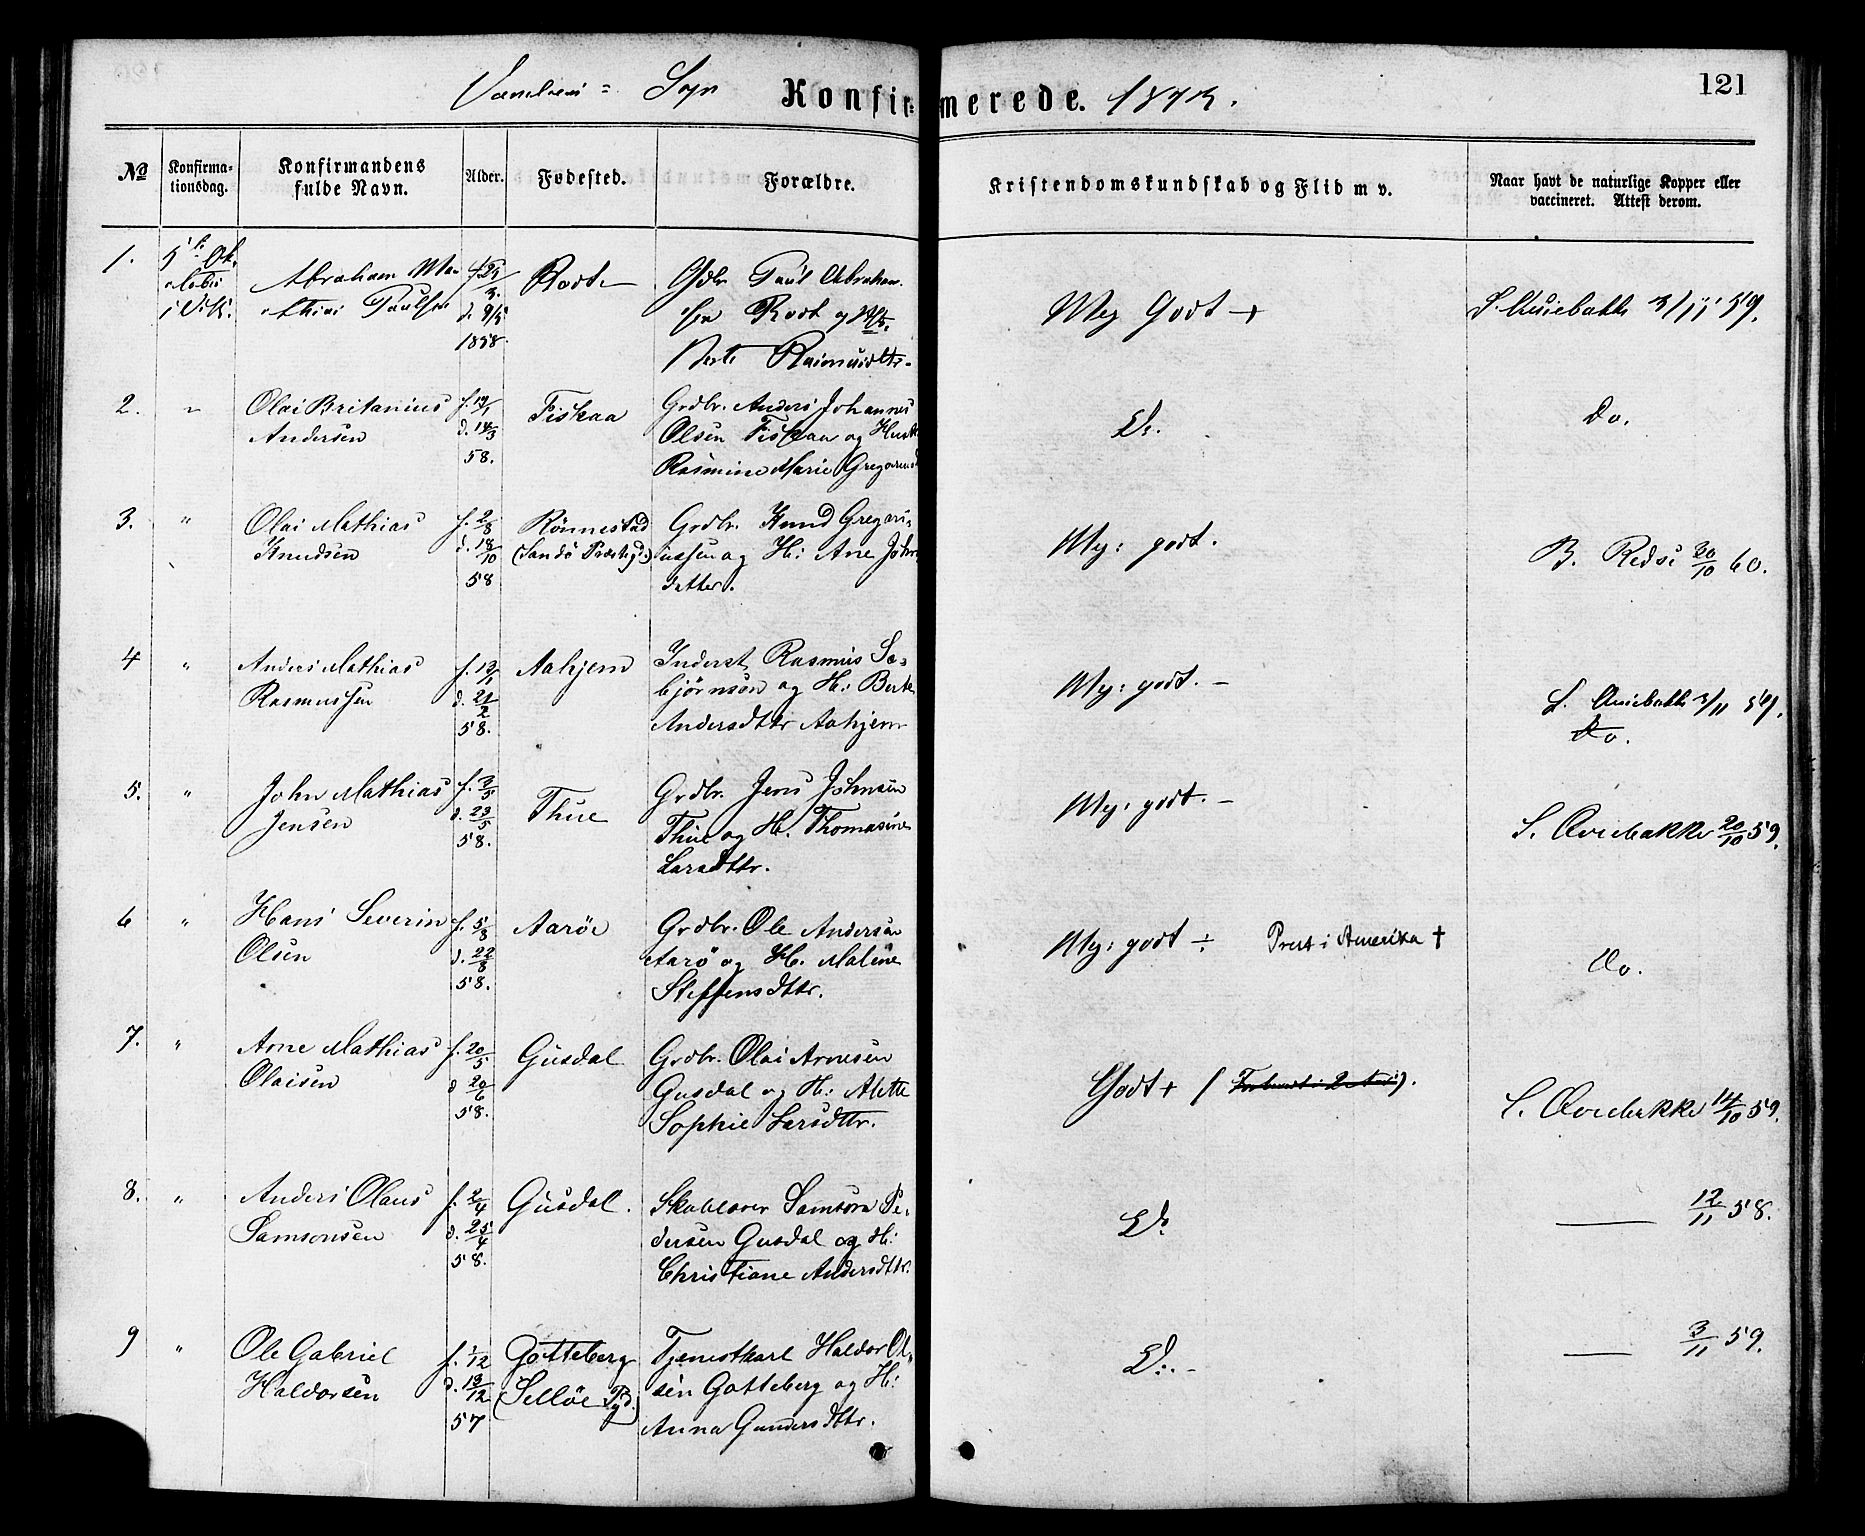 Sogn Konfirmerede. 1873.
121
No Konfirmationsdag. Konfirmandens fulde Navn. Alder. Fødested. Forældre. Kristendomskundskab og Flid m v. Naar havt de naturlige Kopper eller vaccineret. Attest derom.
1. 5te Ok-
tober
i Vik.
Abraham Ma-
thias Paulsen
f. 25/3.
d. 9/5
1858.
Rovde
Gdbr. Paul Abraham-
sen Rovde og
Berte Rasmusdtr.
Meg Godt +
3/11 59.
2. "
Olai Britanius
Andersen
f. 19/1
d. 14/3
58.
Fiskaa
Grdbr. Anders Johannes
Olsen Fiskaa og Hustr
Rasmine Marie Gregoriusd
Do.
Do.
3. "
Olai Mathias
Knudsen
f. 2/8
d. 18/10
58
Rønnestad
(Sandø Præstegd:)
Grdbr. Knud Gregori-
ussen og H: Ane Johns
datter.
Meg: godt.
B. Redse 30/10 60.
4 "
Anders Mathias
Rasmussen
f. 12/1
d. 21/2
58.
Aahjem
Inderst Rasmus Sæ-
bjørnsøn og H: Berte
Andersdttr Aahjem
Meg: godt. –
3/11 59.
Do.
5. "
John Mathias
Jensen
f. 3/5
d. 23/5
58.
Thue
Grdbr. Jens Johnsen
Thue og H. Thomasine
Larsdttr.
Meg: godt. –
S. Qviebakke 20/10 59.
6 "
Hans Severin
Olsen
f. 5/8
d. 22/8
58.
Aarøe
Grdbr. Ole Andersen
Aarø og H. Maline
Steffensdttr.
Meg: godt ÷ Prest i Amerika †
Do.
7. "
Arne Mathias
Olaisen
f. 20/5
d 20/6
58.
Gusdal
Grdbr. Olai Arnesen
Gusdal og H: Alette
Sophie Larsdttr.
Godt +
S. Qviebakke 14/10 59.
8. "
Anders Olaus
Samsonsen
f. 2/4
d. 25/4
58.
Gusdal.
Skolelærer Samson Pe-
dersen Gusdal og H:
Christiane Andersdttr.
Do
— 12/11 58.
9 "
Ole Gabriel
Haldorsen
f. 1/12
d. 13/12
57
Gotteberg
(Selløe Pgd.)
Tjenestkarl Haldor Ol-
sen Gotteberg og H:
Anna Gundersdttr.
Do. –
— 3/11 59.